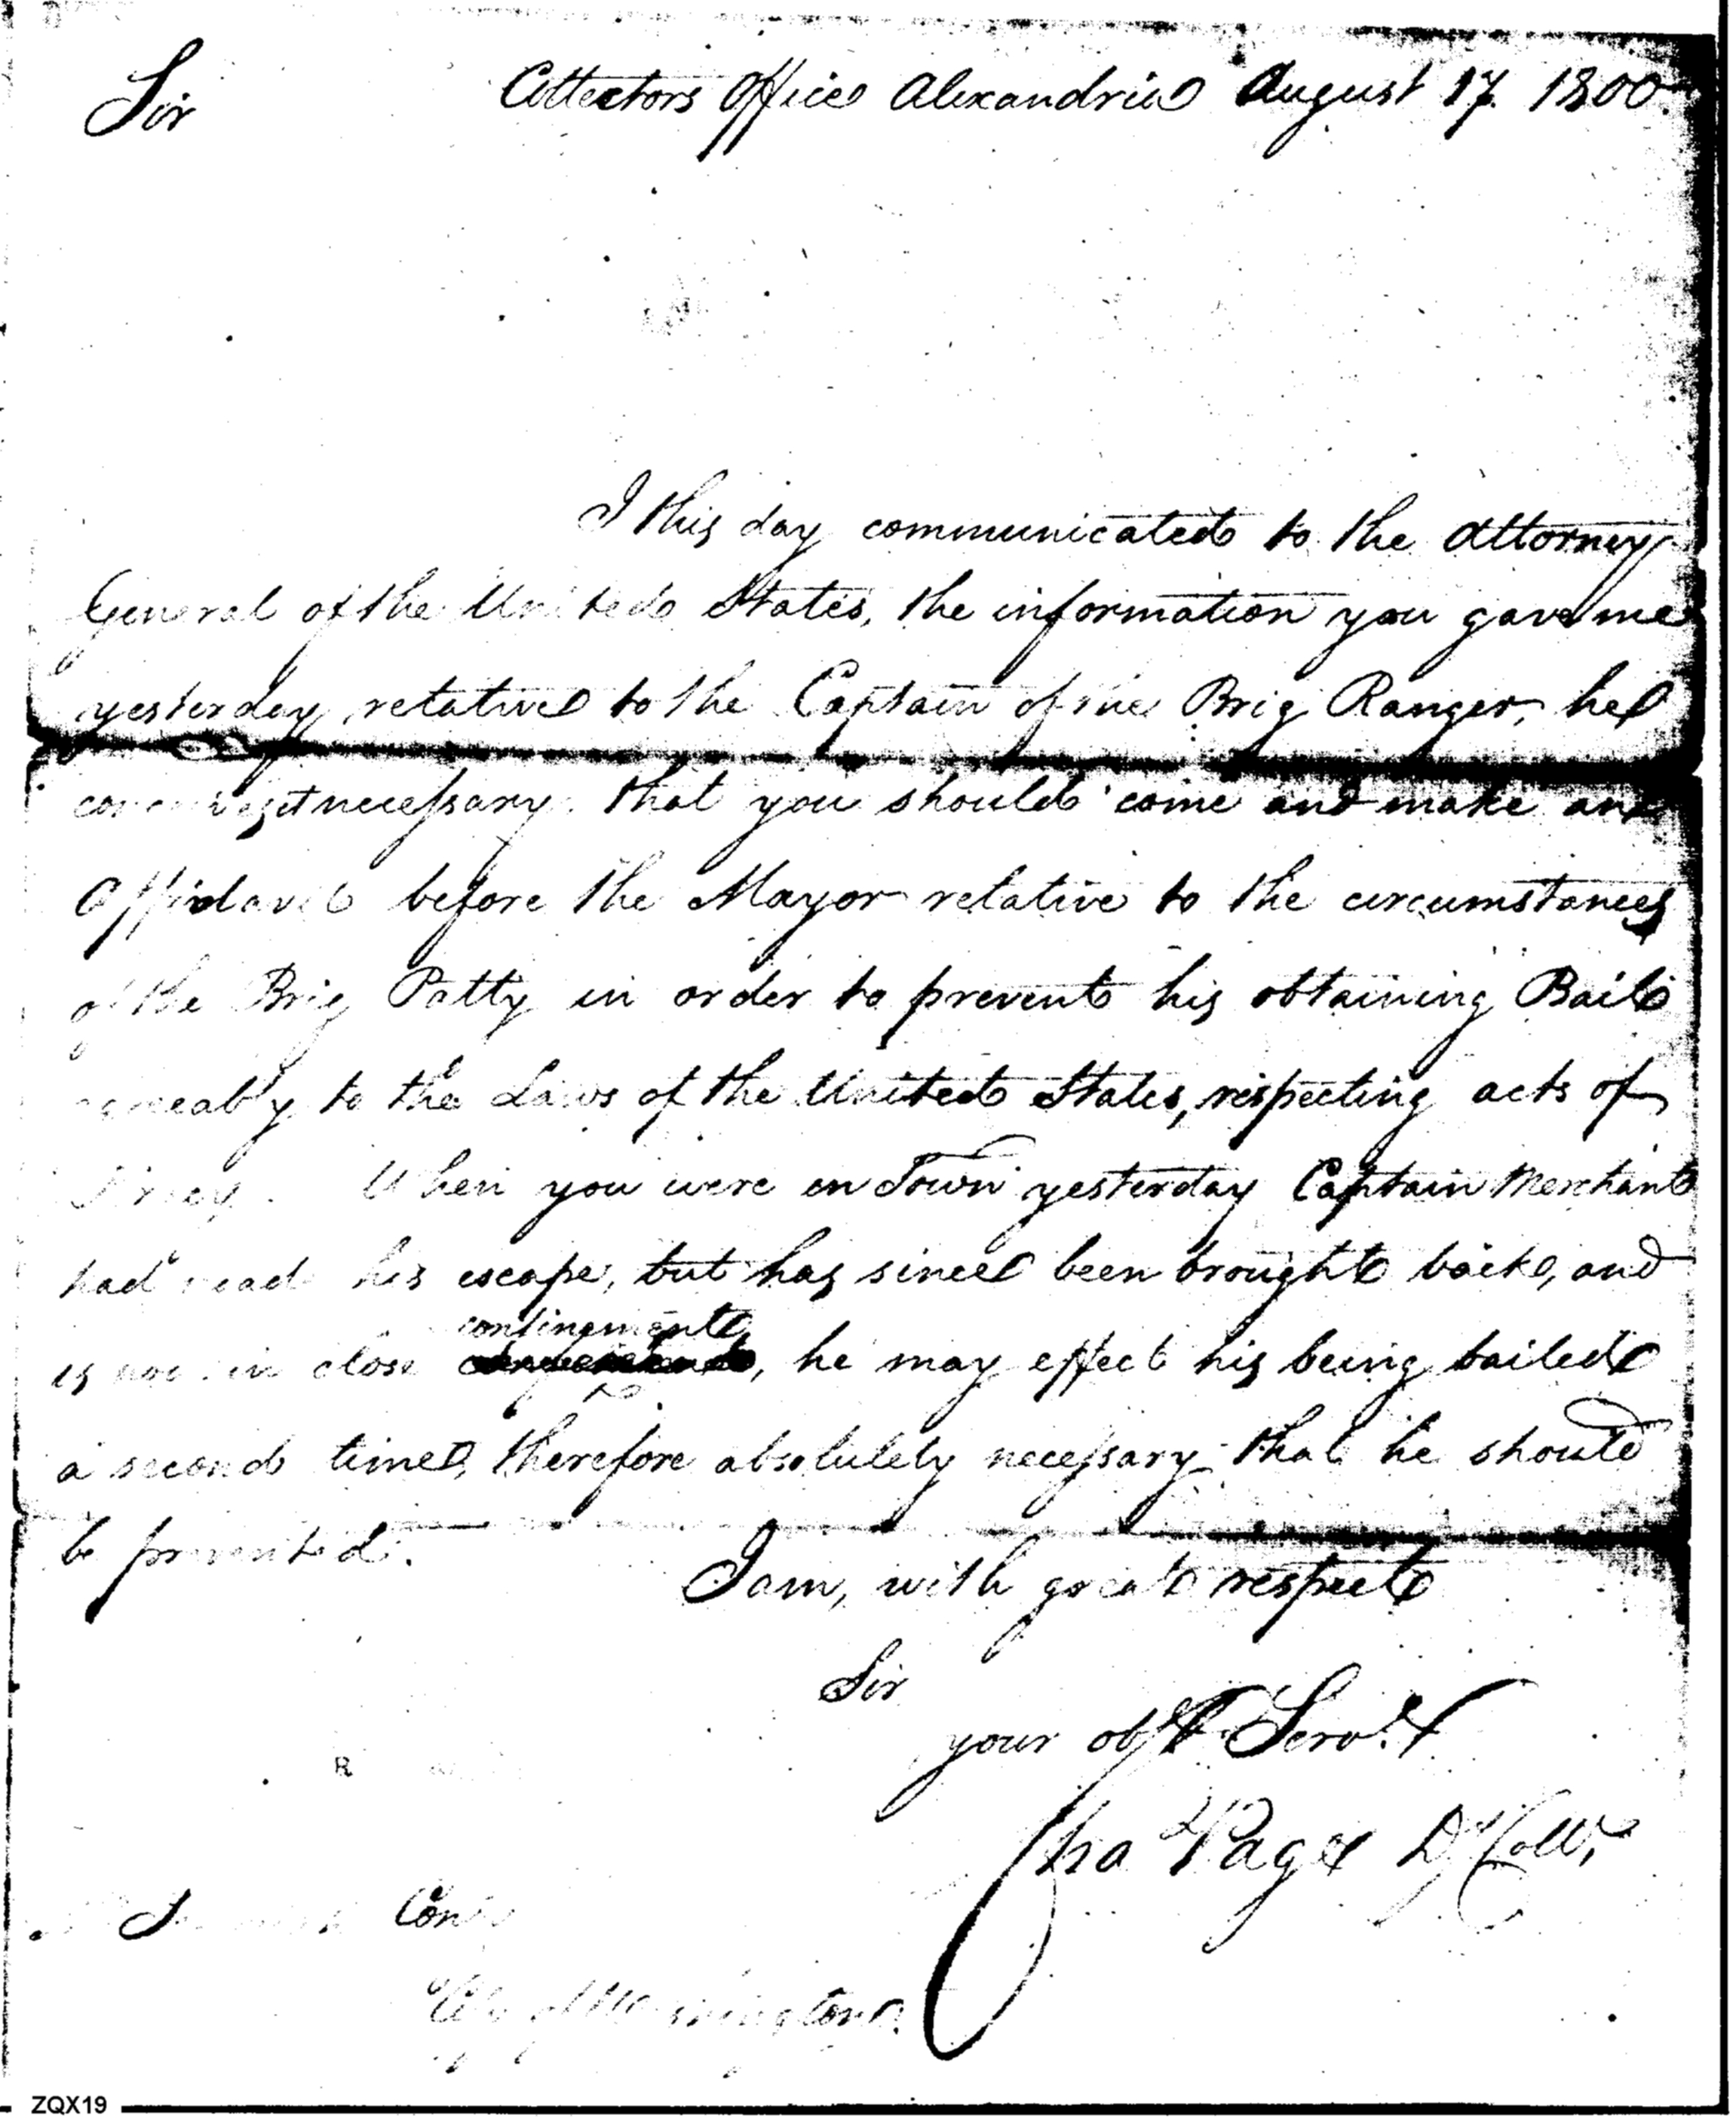 Sir
Collectors Office Alexandria August 17. 1800.
I this day communicated to the Attorney
General of the United States, the information you gave me
yesterday, relative to the Captain of the Brig Ranger, he
conceives it necessary that you should come and make an
Affidavit before the Mayor relative to the circumstances
of the Brig Patty in order to prevent his obtaining Bail
agreeably to the Laws of the United States, respecting acts of
Piracy. When you were in Town yesterday Captain Merchant
had made his escape, but has since been brought back, and
confinement
is now in close , he may effect his being bailed
a second time, therefore absolutely necessary that he should
be prevented.
I am, with great respect
Sir
your obt Servt
Cha Page D Collr
City of Washington.
ZQX19